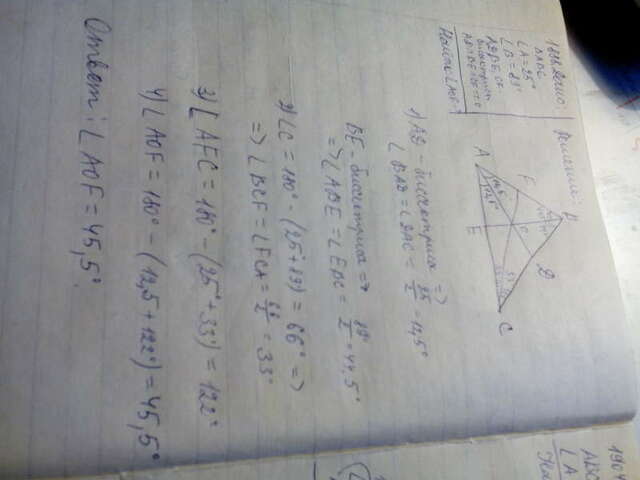 Дано:
△ABC
∠A = 25°
∠B = 89°
AD, BE, CF -
биссектрисы
Найти: ∠AOF - ?
Решение:
B
F
A
O
D
E
C
1) AD - биссектриса =>
∠BAD = ∠DAC = 25/2 = 12,5°
BE - биссектриса =>
=> ∠ABE = ∠EBC = 89°/2 = 44,5°
2) ∠C = 180° - (25° + 89) = 66° =>
=> ∠BCF = ∠FCA = 66/2 = 33°
3) ∠AFC = 180° - (25° + 33°) = 122°
4) ∠AOF = 180° - (12,5 + 122°) = 45,5°
Ответ: ∠AOF = 45,5°.
1904
ABC
∠A